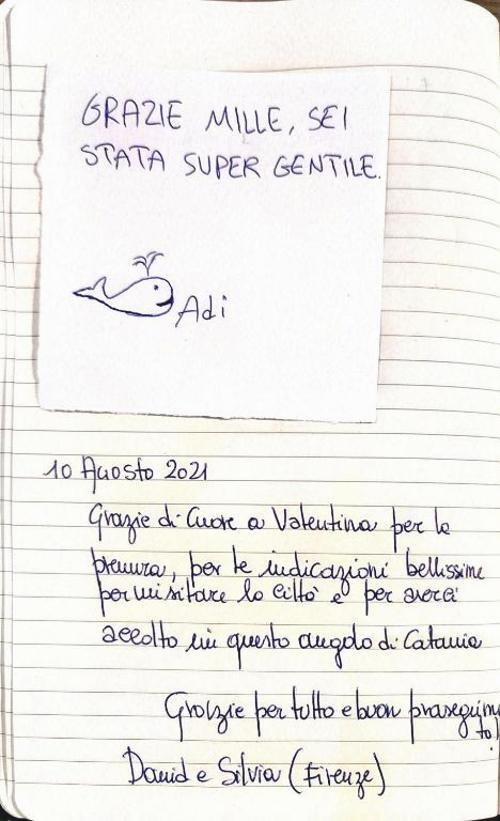 GRAZIE MILLE, SEI
STATA SUPER GENTILE.
Adi
10 Agosto 2021
Grazie di Cuore a Valentina per la
premura, per le indicazioni bellissime
per visitare la città e per averci
accolto in questo angolo di Catania
Grazie per tutto e buon proseguim
to!
David e Silvia (Firenze)